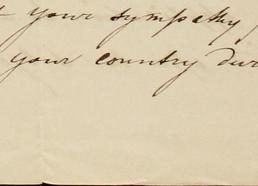 your sympathy,
your country dur